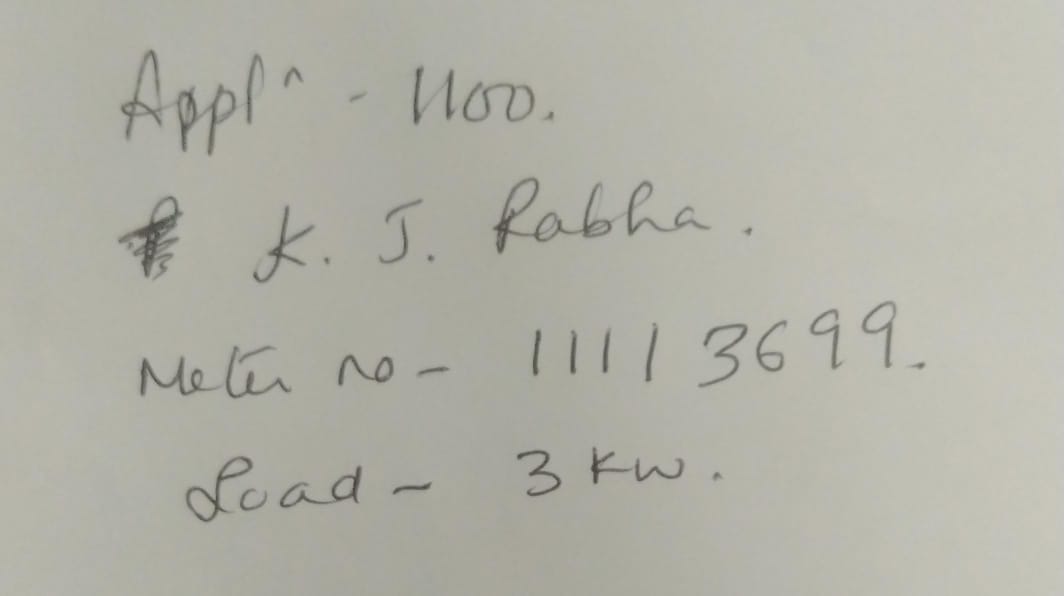 Appl^n - 1100.
K. J. Rabha.
Meter no - 11113699.
Load - 3 KW.